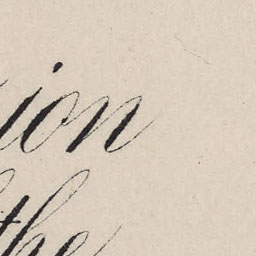 ion
the